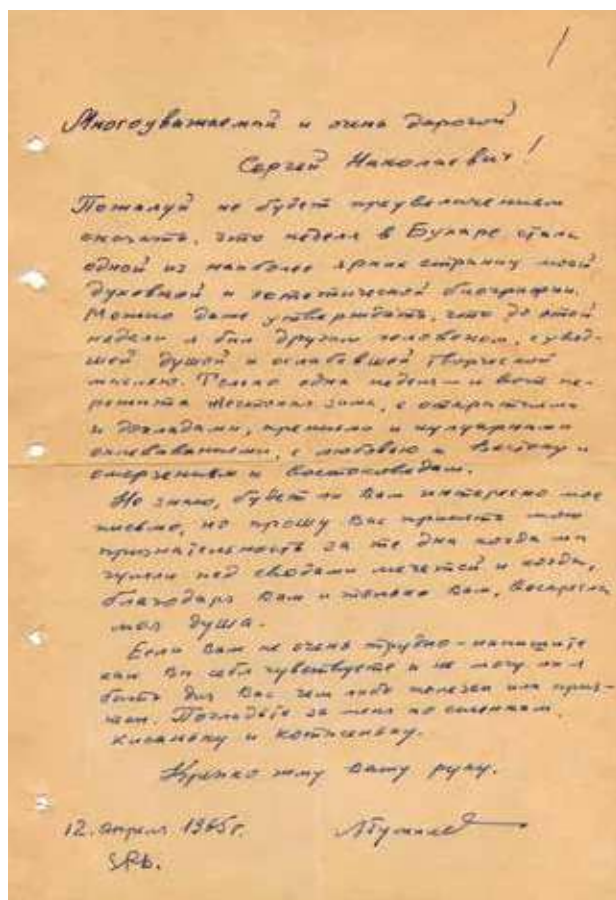 Многоуважаемый и очень дорогой
Сергей Николаевич!
Пожалуй не будет преувеличением
сказать, что неделя в Бухаре стала
одной из наиболее ярких страниц моей
духовной и эстетической биографии.
Можно даже утверждать, что до этой
недели я был другим человеком, с увяд-
шей душой и ослабевшей творческой
мыслью. Только одна неделя – и вот пе-
режита жестокая зима, с открытиями
и докладами, прениями и кулуарными
оплевываниями, с любовью к Востоку и
омерзением к востоковедам.
Не знаю, будет ли Вам интересно мое
письмо, но прошу Вас принять мою
признательность за те дни когда мы
гуляли под сводами мечетей и когда,
благодаря Вам и только Вам, воскресла
моя душа.
Если Вам не очень трудно – напишите
как Вы себя чувствуете и не могу ли я
быть для Вас чем либо полезен или приз-
ван. Погладьте за меня по спинкам
кисаньку и котисеньку.
Крепко жму Вашу руку.
12. апреля 1965 г.
ЛГумилев
SPb.